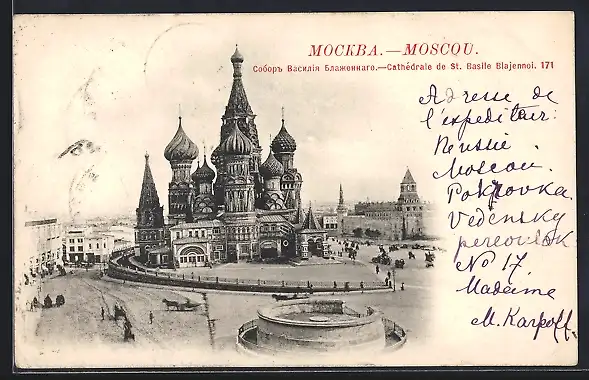 МОСКВА.—MOSCOU.
Соборъ Василія Блаженнаго.—Cathédrale de St. Basile Blajennoi. 171
Adresse de
l'expediteur:
Russie.
Moscou.
Pokrovka.
Vedensky
pereoulok
No 17.
Madame
M. Karpoff.